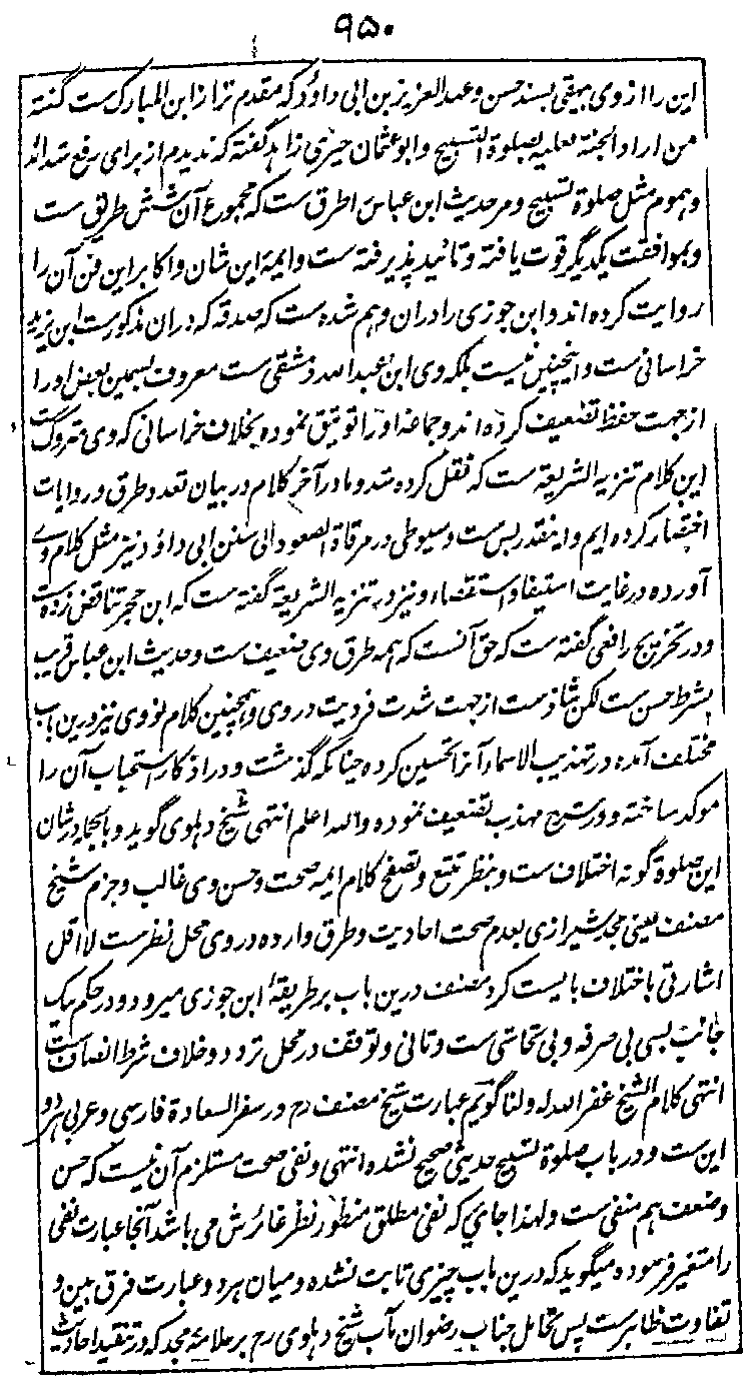 ۹۵۰
این را از وی بیهقی بسند حسن و عبد العزیز بن ابی داؤد که مقدم تر از ابن المبارک ست گفته
من اراد الجنة فعلیه بصلوة التسبیح و ابو عثمان حیری زاهد گفته که ندیدم از برای رفع شدائد
و هموم مثل صلوة تسبیح و مر حدیث ابن عباس را طرق ست که مجموع آن شش طریق ست
و بموافقت یکدیگر قوت یافته و تائید پذیرفته ست و ایمه این شان و اکابر این فن آن را
روایت کرده اند و ابن جوزی را دران وهم شده ست که صدقه که دران مذکورست ابن یزید
خراسانی ست و اینچنین نیست بلکه وی ابن عبد الله دمشقی ست معروف بسمین بعض او را
از جهت حفظ تضعیف کرده اند و جماعه او را توثیق نموده بخلاف خراسانی که وی متروک ست
این کلام تنزیه الشریعة ست که نقل کرده شد و ما در آخر کلام در بیان تعدد طرق و روایات
اختصار کرده ایم و اینقدر بس ست و سیوطی در مرقاة الصعود الی سنن ابی داؤد نیز مثل کلام وے
آورده در غایت استیفا و استقصاء و نیز در تنزیه الشریعة گفته ست که ابن حجر تناقض زده ست
و در تخریج رافعی گفته ست که حق آنست که همه طرق وی ضعیف ست و حدیث ابن عباس قریب
بشرط حسن ست لکن شاذست از جهت شدت فردیت در وی و همچنین کلام نووی نیز درین باب
مختلف آمده در تهذیب الاسماء آنرا تحسین کرده چنانکه گذشت و در اذکار استحباب آن را
موکد ساخته و در شرح مهذب تضعیف نموده والله اعلم انتهی شیخ دهلوی گوید و بالجمله در شان
این صلوة گونه اختلاف ست و بنظر تتبع و تصفح کلام ایمه صحت و حسن وی غالب و جزم شیخ
مصنف یعنی مجد شیرازی بعدم صحت احادیث و طرق وارده در وی محل نظرست لا اقل
اشارتی باختلاف بایست کرد مصنف درین باب بر طریقۀ ابن جوزی میرود و در حکم یک
جانب بسی بی صرفه و بی تحاشی ست و تانی و توقف در محل تردد و خلاف شرط انصاف ست
انتهی کلام الشیخ غفر الله له و لنا گویم عبارت شیخ مصنف رح در سفر السعادة فارسی و عربی هر دو
این ست و در باب صلوة تسبیح حدیثی صحیح نشده انتهی و نفی صحت مستلزم آن نیست که حسن
و ضعف هم منفی ست و لهذا جاي که نفی مطلق منظور نظر غائرش می باشد آنجا عبارت نفی
را متغیر فرموده میگوید که درین باب چیزی ثابت نشده و میان هر دو عبارت فرق بین و
تفاوت ظاهرست پس تحامل جناب رضوان مآب شیخ دهلوی رح بر علامۀ مجد که در تنقید احادیث